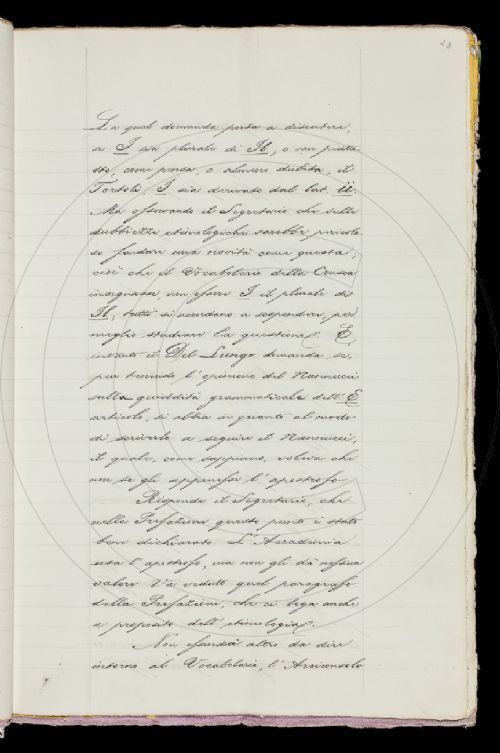 23
La qual domanda porta a discutere,
se I sia plurale di Il, o non piutto-
sto, come pensa, o almeno dubita, il
Tortoli, I sia derivato dal lat. ii.
Ma osservando il Segretario che sulle
dubbiezze etimologiche sarebbe pericolo-
so fondare una novità come questa,
cioè che il Vocabolario della Crusca
insegnasse, non essere I il plurale di
Il; tutti si accordano a sospendere, per
meglio studiare la questione. E,
intanto il Del Lungo domanda se,
pur tenendo l'opinione del Nannucci
sulla quiddità grammaticale dell'E
articolo, si abbia in quanto al modo
di scriverlo a seguire il Nannucci,
il quale, come sappiamo, voleva che
non se gli apponesse l'apostrofo.
Risponde il Segretario, che
nella Prefazione questo punto è stato
ben dichiarato. L'Accademia
usa l'apostrofo, ma non gli dà nessun
valore. Và veduto quel paragrafo
della Prefazione, che ci lega anche
a proposito dell'etimologia.
Non essendo altro da dire
intorno al Vocabolario, l'Arciconsolo